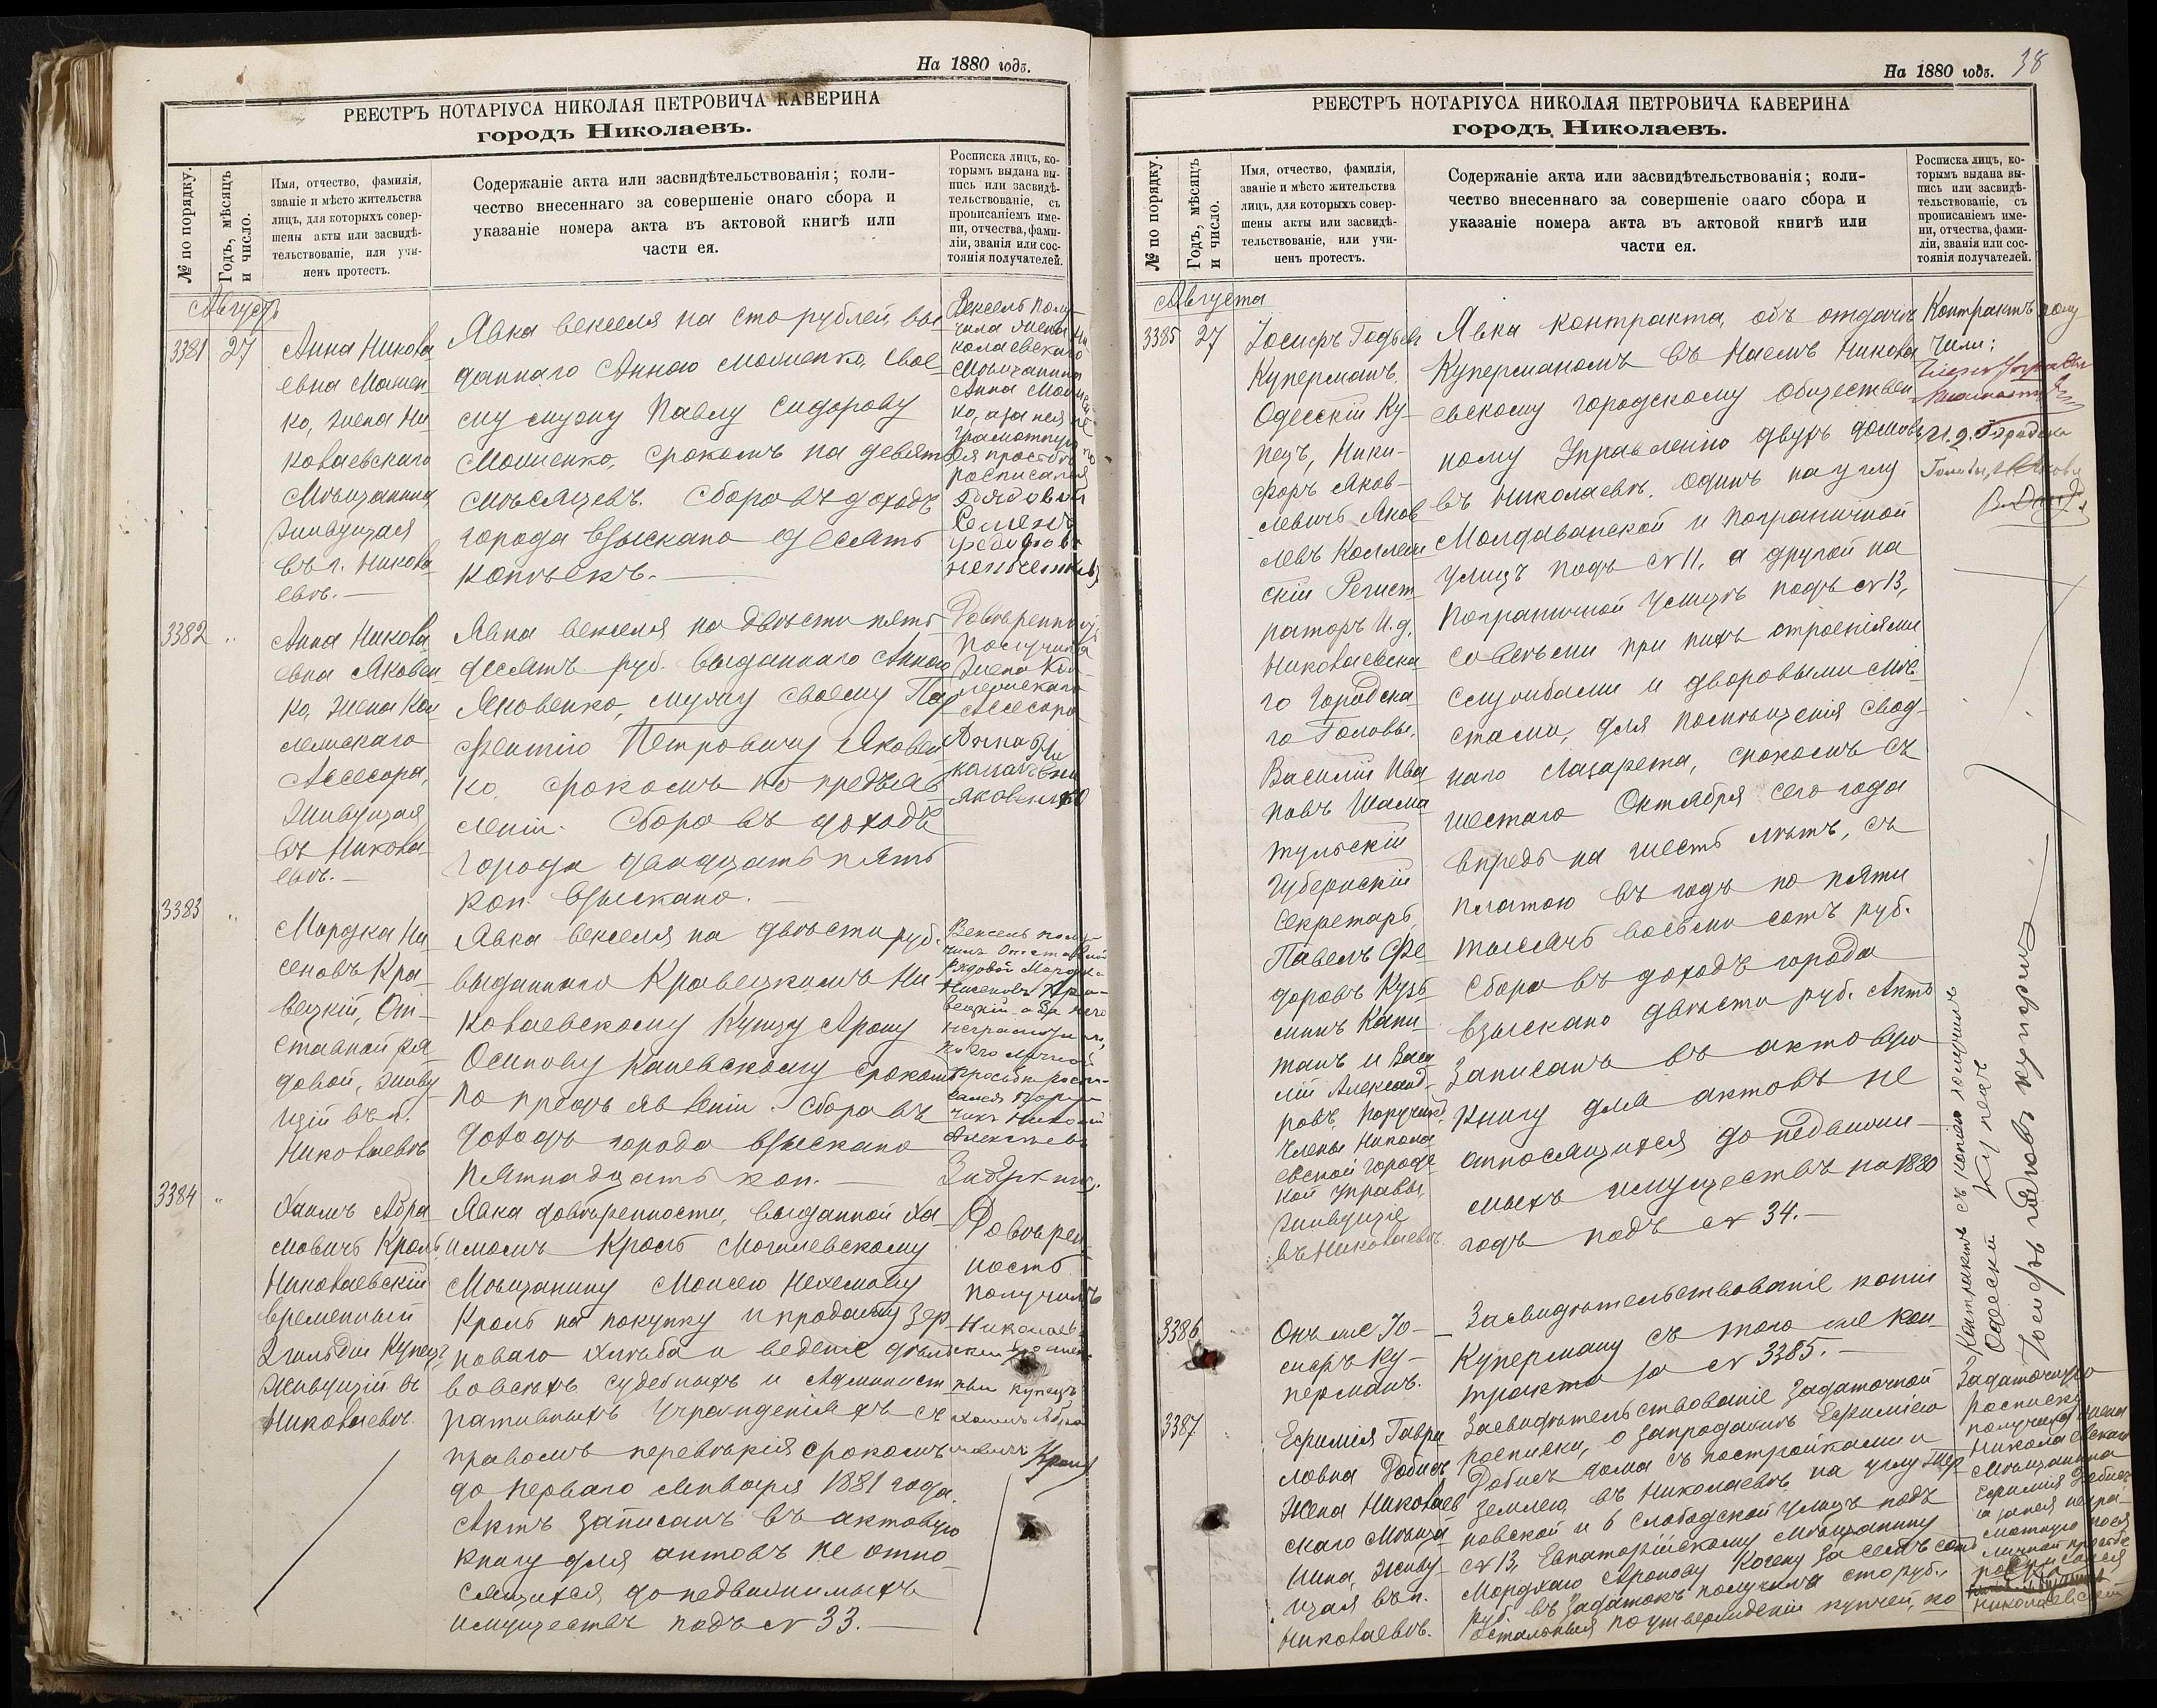 На 1880 годъ.
РЕЕСТРЪ НОТАРІУСА НИКОЛАЯ ПЕТРОВИЧА КАВЕРИНА
городъ Николаевъ.
№ по порядку.
Годъ, мѣсяцъ
и число.
Имя, отчество, фамилія,
званіе и мѣсто жительства
лицъ, для которыхъ совер-
шены акты или засвидѣ-
тельствованіе, или учи-
ненъ протестъ.
Содержаніе акта или засвидѣтельствованія; коли-
чество внесеннаго за совершеніе онаго сбора и
указаніе номера акта въ актовой книгѣ или
части ея.
Росписка лицъ, ко-
торымъ выдана вы-
пись или засвидѣ-
тельствованіе, съ
прописаніемъ име-
ни, отчества, фами-
ліи, званія или сос-
тоянія получателей.
Августъ
3381 27
Анна Никола
евна Мошен-
ко, жена Ни-
колаевскаго
Мѣщанина,
живущая
въ г. Никола-
евѣ.
Явка векселя на сто рублей, вы-
даннаго Анною Мошенко, свое-
му мужу Павлу Сидорову
Мошенко, срокомъ на девять
мѣсяцевъ. Сбора въ доходъ
города взыскано десять
копѣекъ.
Вексель полу-
чила жена Ни
колаевскаго
Мѣщанина
Анна Мошен
ко, а за нея не
грамотную по
ея просьбѣ
росписался
рядовой
Семенъ
3382 "
Анна Никола
евна Яковен-
ко, жена Кол
лежскаго
Ассесора,
живущая
въ Никола-
евѣ.
Явка векселя на двѣсти пять-
десятъ руб. выданнаго Анною
Яковенко, мужу своему Пар
фентію Петровичу Яковен
ко, срокомъ по предъяв
леніи. Сбора въ доходъ
города двадцать пять
коп. взыскано.
Довѣренность
получила
жена Кол-
лежскаго
Ассесора
Анна Ни
колаевна
Яковенко
3383 "
Мордка Ни
сеновъ Кра-
вецкій, От-
ставной ря
довой, живу
щій въ г.
Николаевѣ
Явка векселя на двѣсти руб.
выданнаго Кравецкимъ Ни-
колаевскому Купцу Арону
Осипову Каневскому срокомъ
по предъявленіи. Сбора въ
доходъ города взыскано
пятнадцать коп.
Вексель полу-
чилъ Отставной
Рядовой Мордка
Нисеновъ Кра-
вецкій а за него
неграмотнаго,
по его личной
просьбѣ роспи-
сался
Алексѣевъ
3384 "
Хаимъ Абра-
мовичъ Кроль,
Николаевскій
временный
2 гильдіи Купецъ
живущій въ
Николаевѣ.
Явка довѣренности, выданной Ха-
имомъ Кроль Могилевскому
Мѣщанину Моисею Нехемову
Кроль на покупку и продажу зер-
новаго хлѣба и веденіе дѣлъ
во всѣхъ судебныхъ и Админист
ративныхъ учрежденіяхъ съ
правомъ перевѣрія срокомъ
до перваго Января 1881 года.
Актъ записанъ въ актовую
книгу для актовъ не отно-
сящихся до недвижимыхъ
имуществъ подъ № 33.
Довѣрен
ность
получилъ
Николаев-
скій времен-
ный купецъ
Хаимъ Абра
мовичъ Кроль
На 1880 годъ.
38
РЕЕСТРЪ НОТАРІУСА НИКОЛАЯ ПЕТРОВИЧА КАВЕРИНА
городъ Николаевъ.
№ по порядку.
Годъ, мѣсяцъ
и число.
Имя, отчество, фамилія,
званіе и мѣсто жительства
лицъ, для которыхъ совер-
шены акты или засвидѣ-
тельствованіе, или учи-
ненъ протестъ.
Содержаніе акта или засвидѣтельствованія; коли-
чество внесеннаго за совершеніе онаго сбора и
указаніе номера акта въ актовой книгѣ или
части ея.
Росписка лицъ, ко-
торымъ выдана вы-
пись или засвидѣ-
тельствованіе, съ
прописаніемъ име-
ни, отчества, фами-
ліи, званія или сос-
тоянія получателей.
Августа
3385 27
Іосифъ
Куперманъ,
Одесскій Ку-
пецъ, Ники-
форъ Яков-
левичъ Яков
левъ Коллеж
скій Регист-
раторъ И. д.
Николаевска
го Городска
го Головы,
Василій Ива
новъ Шама
тульскій
Губернскій
Секретарь,
Павелъ Фе-
доровъ Кузь-
минъ Капи-
танъ и Васи
лій Александ-
ровъ, поручикъ
Члены Никола
евской Городс
кой Управы,
живущіе
въ Николаевѣ.
Явка контракта, объ отдачѣ
Куперманомъ въ наемъ Никола
евскому городскому Обществен
ному Управленію двухъ домовъ
въ Николаевѣ, одинъ на углу
Молдаванской и Пограничной
улицъ подъ № 11, а другой на
Пограничной улицѣ подъ № 13,
со всѣми при нихъ строеніями
службами и дворовыми мѣ-
стами, для помѣщенія свод-
наго Лазарета, срокомъ съ
шестаго Октября сего года
впредь на шесть лѣтъ, съ
платою въ годъ по пяти
тысячъ восьми сотъ руб.
Сбора въ доходъ города
взыскано двѣсти руб. Актъ
записанъ въ актовую
книгу для актовъ не
относящихся до недвижи-
мыхъ имуществъ на 1880
годъ подъ № 34.
Контрактъ полу-
чили:
И. д. Городска
Головы,
Контрактъ съ копіею получилъ
Одесскій Купецъ
3386
Онъ же Іо-
сифъ Ку-
перманъ.
Засвидѣтельствованіе копіи
Куперману съ того же кон-
тракта за № 3385.
3387
Ефимія Гаври
ловна
жена Николаев
скаго Мѣща
нина, живу-
щая въ г.
Николаевѣ.
Засвидѣтельствованіе задаточной
росписки, о запродажѣ Ефиміею
дома съ постройками и
землею, въ Николаевѣ, на углу Хер-
сонской и 6 Слободской улицъ подъ
№ 13, Евпаторійскому Мѣщанину
Мордхаю Аронову Когену за семь сотъ
руб. въ задатокъ получила сто руб.,
остальныя по утвержденіи купчей, по
Задаточную
росписку
получила жена
Николаевскаго
Мѣщанина
Ефимія
а за нея негра-
мотную по ея
личной просьбѣ
росписался
Николаевскій